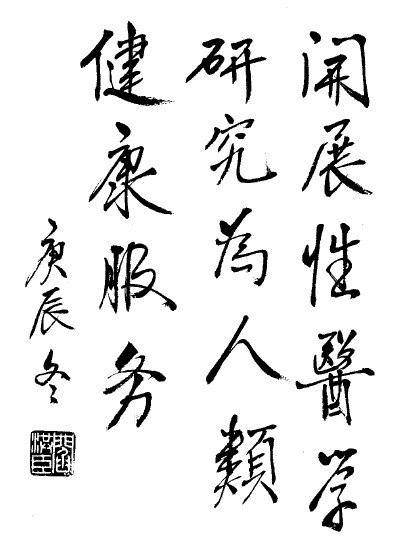 開展性醫学
研究為人類
健康服务
庚辰冬